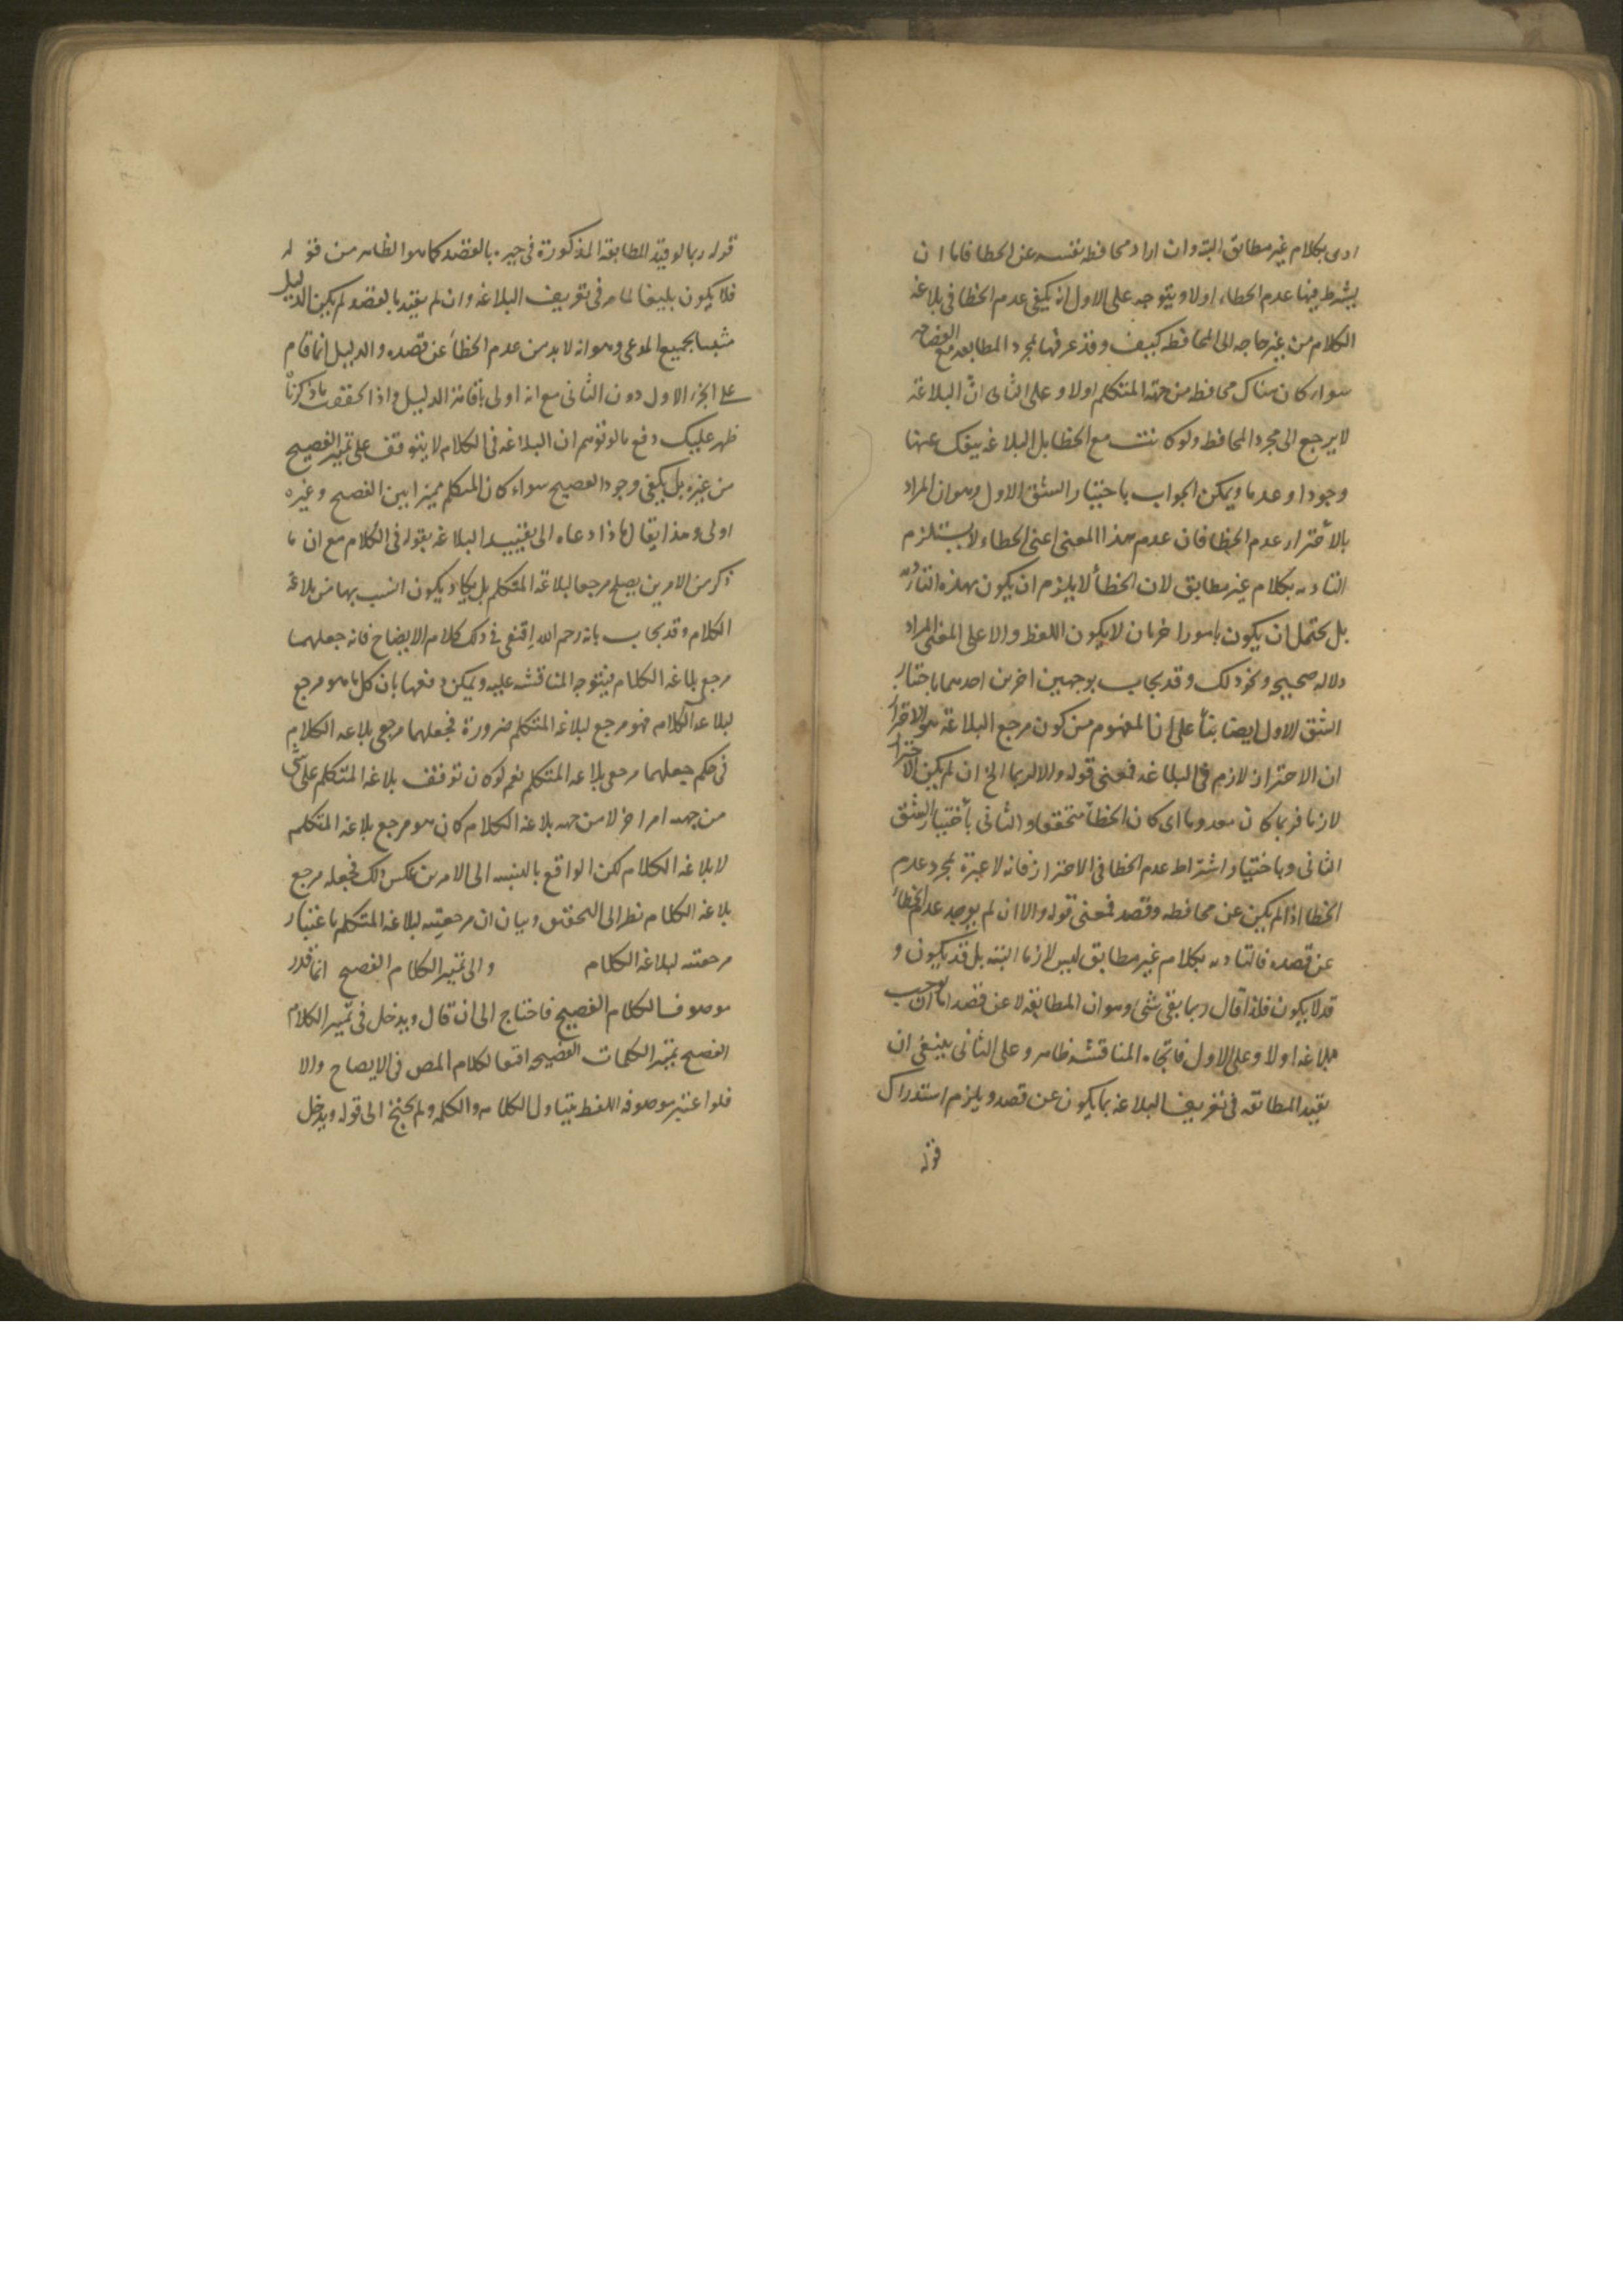 ادى بكلام غير مطابق البتة وان اراد محافظة نفسه عن الخطا فاما ان
يشترط فيها عدم الخطاء اولا ويتوجه على الاول انه يكفى عدم الخطا فى بلاغة
الكلام من غير حاجه الى المحافظة كيف وقد عرفها بمجرد المطابعه مع الفصاحه
سواء كان هناك محافظه من جهة المتكلم اولا وعلى الثانى ان البلاغة
لا يرجع الى مجرد المحافظه ولو كانت مع الخطا بل البلاغه ينفك عنها
وجودا وعدما ويمكن الجواب باختيار الشق الاول وهو ان المراد
بالاحتراز عدم الخطا فان عدم هذا المعنى اعنى الخطاء لا يستلزم
التاديه بكلام غير مطابق لان الخطأ لا يلزم ان يكون بهذه التاديه
بل يحتمل ان يكون بامور اخر بان لا يكون اللفظ دالا على المعنى المراد
دلاله صحيحه ونحو ذلك وقد يجاب بوجهين اخرين احدهما باختيار
الشق الاول ايضا بناء على ان المفهوم من كون مرجع البلاغة هو الاحتراز
ان الاحتراز لازم فى البلاغه فمعنى قوله والا لربما الخ ان لم يكن الاحتراز
لازما فربما كان معدوما اى كان الخطأ متحققا والثانى بأختيار الشق
الثانى وباختيار اشتراط عدم الخطا فى الاحتراز فانه لا عبرة بمجرد عدم
الخطا اذا لم يكن عن محافظه وقصد فمعنى قوله والا ان لم يوجد عدم الخطاء
عن قصده فالتاديه بكلام غير مطابق ليس لازما البتة بل قد يكون و
قد لا يكون فلذا قال ربما بقى شئ وهو ان المطابقه لا عن قصد اما ان يوجب
بلاغه اولا وعلى الاول فاتجاه المناقشه ظاهر وعلى الثانى ينبغى ان
يقيد المطابقه فى تعريف البلاغه بما يكون عن قصد ويلزم استدراك
قوله
قوله ربما لو قيد المطابقة المذكورة فى حيزه بالقصد كما هو الظاهر من قوله
فلا يكون بليغا لما مر فى تعريف البلاغه وان لم يقيد بالقصد لم يكن الدليل
مثبتا بجميع المدعى وهو انه لا بد من عدم الخطأ عن قصده والدليل انما قام
على الجزء الاول دون الثانى مع انه اولى باقامة الدليل واذا تحققت ما ذكرنا
ظهر عليك دفع ما لو توهم ان البلاغه فى الكلام لا يتوقف على تميز الفصيح
من غيره بل يكفى وجود الفصيح سواء كان المتكلم مميزا بين الفصيح وغيره
اولى وهذا يقال ماذا دعاه الى تقييد البلاغه بقوله فى الكلام مع ان ما
ذكر من الامرين يصلح مرجعا لبلاغة المتكلم بل يكاد يكون انسب بها من بلاغة
الكلام وقد يجاب بانه رحمه الله اقتفى فى ذلك كلام الايضاح فانه جعلهما
مرجع بلاغه الكلام فيتوجه المناقشه عليه ويمكن دفعها بان كل ما هو مرجع
لبلاغه الكلام فهو مرجع لبلاغه المتكلم ضرورة فجعلهما مرجعى بلاغه الكلام
فى حكم جعلهما مرجعى بلاغه المتكلم نعم لو كان توقف بلاغه المتكلم على شئ
من جهه امر اخر لا من جهه بلاغه الكلام كان هو مرجع بلاغه المتكلم
لا بلاغه الكلام لكن الواقع بالنسبه الى الامرين عكس ذلك فجعله مرجع
بلاغه الكلام نظر الى التحقيق وبيان ان مرجعيته لبلاغه المتكلم باعتبار
مرجعيته لبلاغه الكلام والى تميز الكلام الفصيح انما قدر
موصوف الكلام الفصيح فاحتاج الى ان قال ويدخل فى تميز الكلام
الفصيح تميز الكلمات الفصيحه اقتفا لكلام المص فى الايضاح والا
فلو اعتبر موصوفه اللفظ يتناول الكلام والكلمه ولم يحتج الى قوله ويدخل